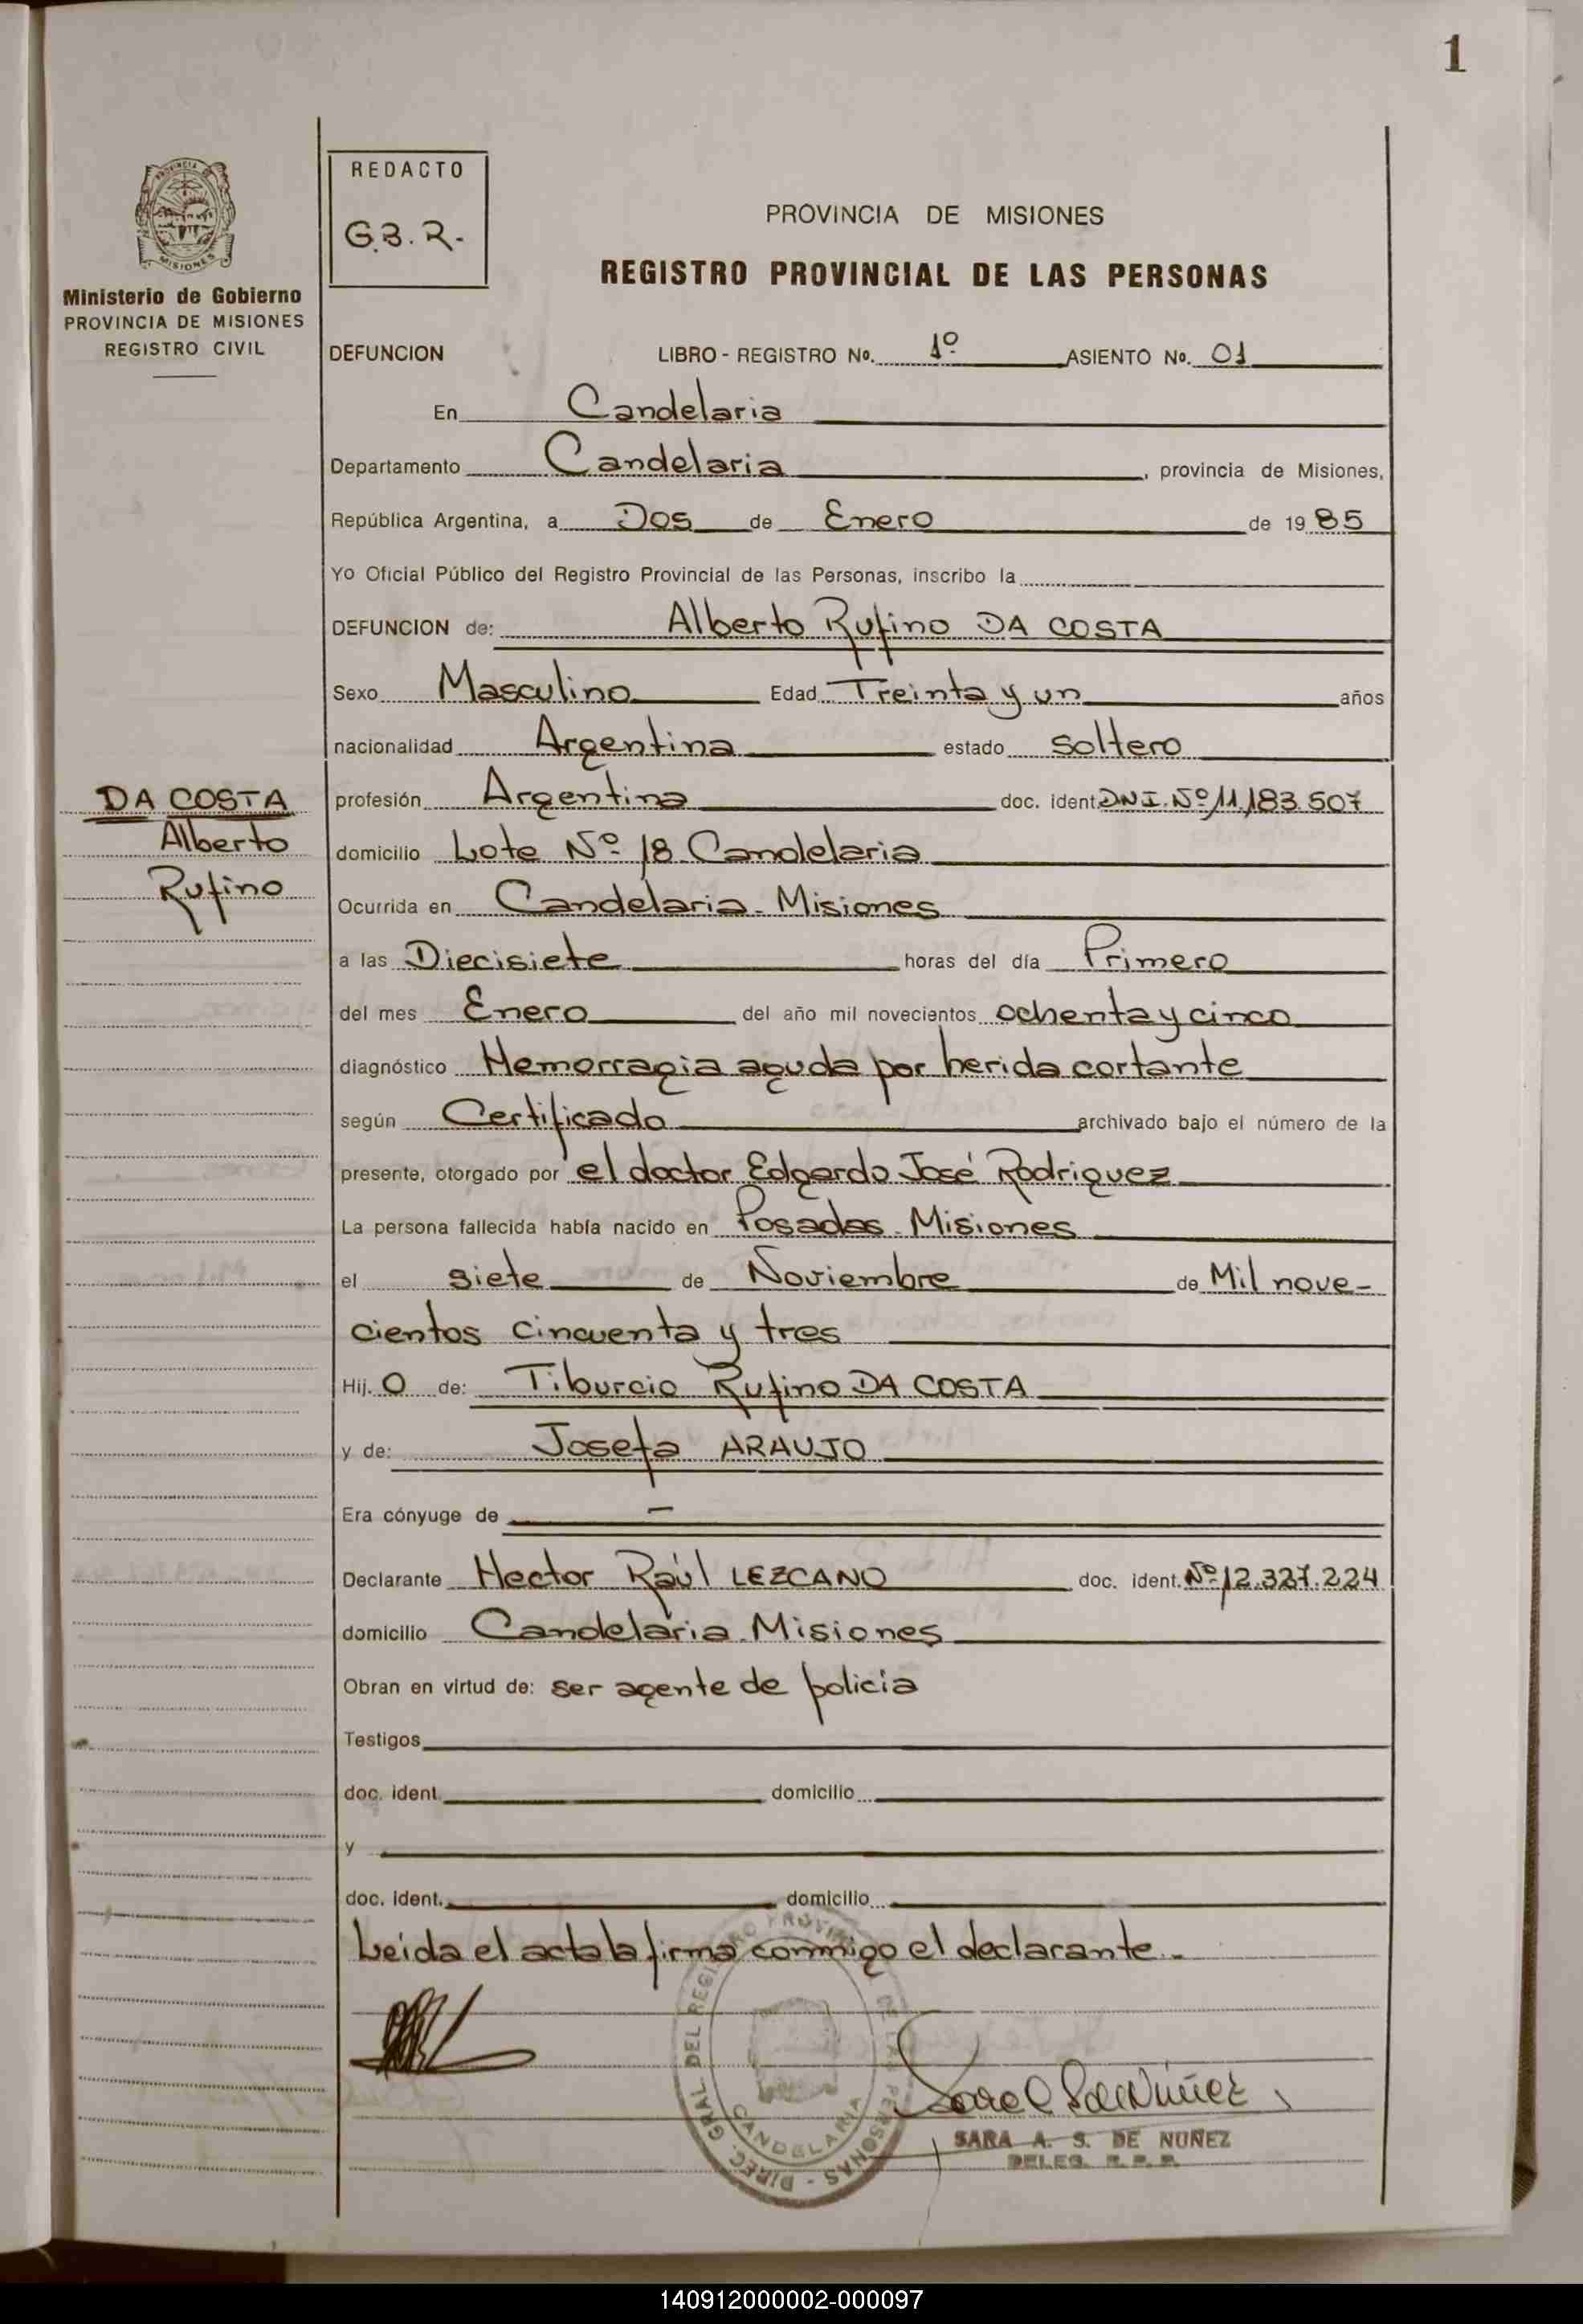 1
PROVINCIA DE
MISIONES
Ministerio de Gobierno
PROVINCIA DE MISIONES
REGISTRO CIVIL
REDACTO
G.B.R.-
PROVINCIA DE MISIONES
REGISTRO PROVINCIAL DE LAS PERSONAS
DEFUNCION LIBRO - REGISTRO No. 1º ASIENTO No. 01
En Candelaria
Departamento Candelaria, provincia de Misiones,
República Argentina, a Dos de Enero de 1985
Yo Oficial Público del Registro Provincial de las Personas, inscribo la
DEFUNCION de: Alberto Rufino DA COSTA
Sexo Masculino Edad Treinta y un años
nacionalidad Argentina estado soltero
DA COSTA
Alberto
Rufino
profesión Argentina doc. ident. DNI. Nº 11,183.507
domicilio Lote Nº 18 Candelaria
Ocurrida en Candelaria - Misiones
a las Diecisiete horas del día Primero
del mes Enero del año mil novecientos ochenta y cinco
diagnóstico Hemorragia aguda por herida cortante
según Certificado archivado bajo el número de la
presente, otorgado por el doctor Edgardo José Rodriguez
La persona fallecida había nacido en Posadas - Misiones
el siete de Noviembre de Mil nove-
cientos cincuenta y tres
Hij. O de: Tiburcio Rufino DA COSTA
y de: Josefa ARAUJO
Era cónyuge de -
Declarante Hector Raúl LEZCANO doc. ident. Nº 12.327.224
domicilio Candelaria - Misiones
Obran en virtud de: ser agente de policía
Testigos
doc. ident. domicilio
y
doc. ident. domicilio
Leída el acta la firma conmigo el declarante.-
DIREC. GRAL. DEL REGISTRO PROVINCIAL DE LAS PERSONAS -
CANDELARIA
SARA A. S. DE NUÑEZ
DELEG. R. P. P.
140912000002-000097